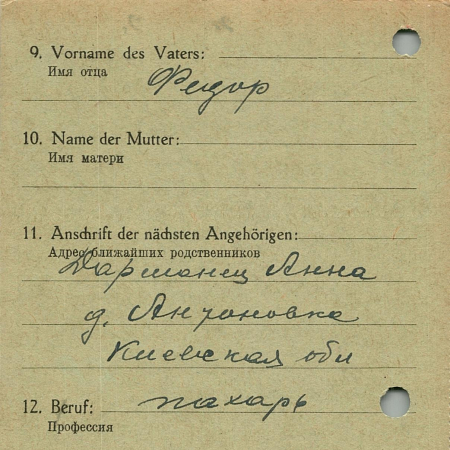 9. Vorname des Vaters:
Имя отца
Федор
10. Name der Mutter:
Имя матери
11. Anschrift der nächsten Angehörigen:
Адрес ближайших родственников
Дарманец Анна
д. Антоновка
Киевская обл
12. Beruf: пахарь
Профессия